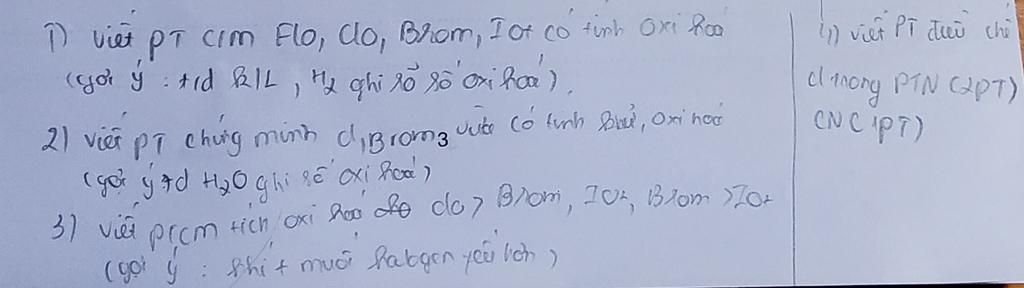 1) viết PT c/m Flo, clo, Brom, Iot có tính oxi hoá
(gợi ý : t/d k/L, H2 ghi rõ số oxi hoá).
2) viết PT chứng minh cl, Brom vừa có tính khử, oxi hoá
(gợi ý t/d H2O ghi số oxi hoá)
3) viết ptcm tính oxi hoá clo > Brom, Iot, Brom > Iot
(gợi ý : khí + muối halogen yếu hơn)
4) viết PT điều chế
cl trong PTN (2PT)
CN (1PT)